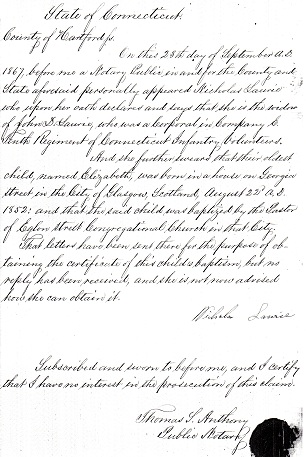 State of Connecticut
County of Hartford ss.
On this 28th day of September A.D.
1867, before me a Notary Public, in and for the County and
State aforesaid personally appeared Nicholas Lawrie
who upon her oath declares and says that she is the widow
of John D. Lawrie, who was a Corporal in Company C
Tenth Regiment of Connecticut Infantry Volunteers.
And she further swears that their oldest
child, named Elizabeth, was born in a house on Georgia
street in the City of Glasgow, Scotland, August 22d A.D.
1852: and that the said child was baptized by the Pastor
of Eglon street Congregational Church in that City.
That letters have been sent there for the purpose of ob-
taining the certificate of this child's baptism, but no
reply has been received, and she is not now advised
how she can obtain it.
Lawrie
Subscribed and sworn to before me, and I certify
that I have no interest in the prosecution of this claim.
Thomas S. Anthony
Public Notary